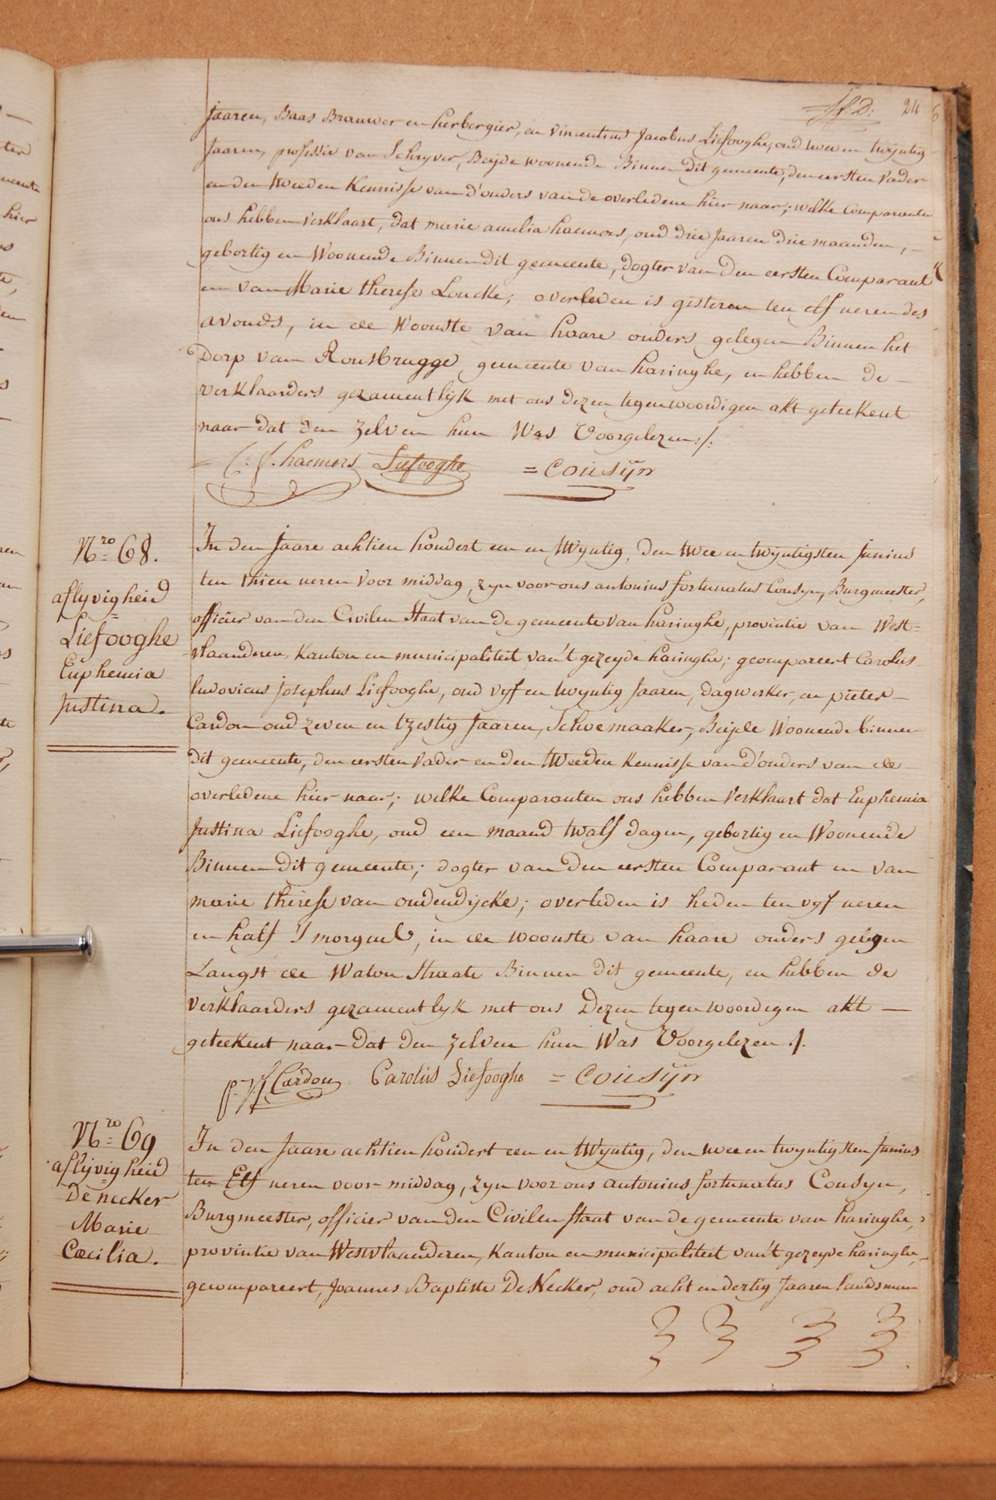 24
Jaaren, Baas Brauwer en herbergier, en vincentius Jacobus Liefooghe, oud twee en twyntig
Jaaren, professie van Schryver, Beijde woonende Binnen dit gemeente, den eersten vader
en den tweeden kennisse van d'ouders van de overledene hier naar; welke Comparanten
ons hebben verklaart, dat marie amelia haemers, oud drie Jaaren drie maanden,
gebortig en Woonende Binnen dit gemeente, dogter van den eersten Comparant
en van Marie therese Loncke; overleden is gisteren ten elf ueren des
avonds, in de Woonste van haare ouders gelegen Binnen het
Dorp van Rousbrugge gemeente van haringhe, en hebben de
verklaarders gezamentlijk met ons dezen tegenwoordigen akt geteekent
naar dat den zelven hun Was Voorgelezen ./.
haemers Liefooghe = Cousyn
Nro 68.
aflyvigheid
Liefooghe
Euphemia
Justina.
In den Jaare achtien hondert een en twyntig, den twee en twyntigsten Junius
ten thien ueren voor middag, zyn voor ons antonius fortunatus Cousyn, Burgmeester,
officier van den Civilen Staat van de gemeente van haringhe, provintie van West=
vlaanderen, kanton en municipaliteit van't gezeyde haringhe; gecompareert Carolus
ludovicus josephus Liefooghe, oud vyf en twyntig Jaaren, dagwerker, en pieter
Cardon oud zeven en tzestig Jaaren, Schoemaaker, Beijde Woonende binnen
dit gemeente, den eersten vader en den tweeden kennisse van d'ouders van de
overledene hier naar; welke Comparanten ons hebben verklaart dat Euphemia
Justina Liefooghe, oud een maand twalf dagen, gebortig en Woonende
Binnen dit gemeente; dogter van den eersten Comparant en van
marie therese van oudendycke; overleden is heden ten vyf ueren
en half S'morgens, in de woonste van haare ouders gelegen
Langst de Waton Straate Binnen dit gemeente, en hebben de
verklaarders gezamentlyk met ons Dezen tegenwoordigen akt
geteekent naar dat den zelven hun Was Voorgelezen ./.
Cardon Carolus Liefooghe = Cousyn
Nro 69
aflijvigheid
De necker
Marie
Cæcilia.
In den Jaare achtien hondert een en twyntig, den twee en twyntigsten Junius
ten Elf ueren voor middag, zyn voor ons antonius fortunatus Cousyn,
Burgmeester, officier van den Civilen Staat van de gemeente van haringhe,
provintie van Westvlaanderen, kanton en municipaliteit van't gezeyde haringhe,
gecompareert, Joannes Baptiste De Necker, oud acht en dertig Jaaren landsman